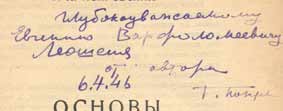 Глубокоуважаемому
Евгению Варфоломеевичу
от автора
6.4.46
ОСНОВЫ